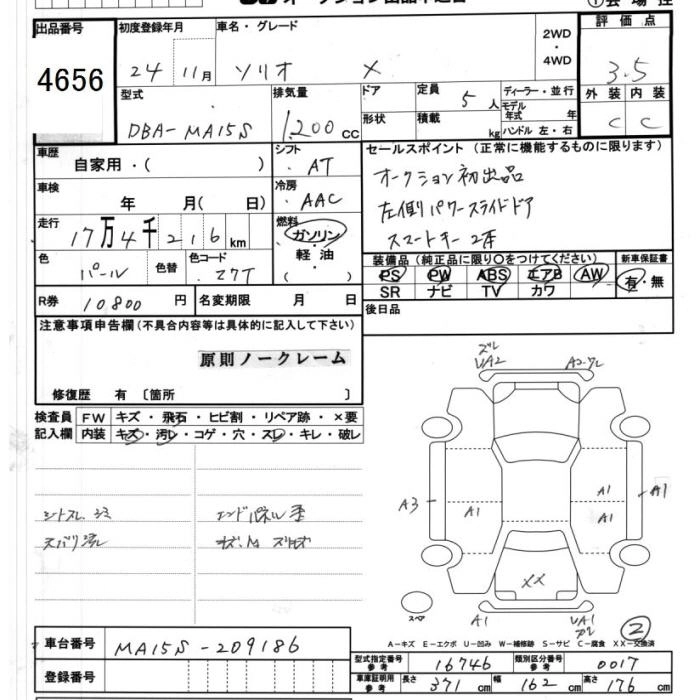 出品番号
4656
初度登録年月
24 11月
車名・グレード
ソリオ X
2WD
・
4WD
評価点
3.5
外装 内装
C C
型式
DBA-MA15S
排気量
1,200 cc
ドア
形状
定員
5人
積載
kg
ディーラー・並行
モデル年式 年
ハンドル 左・右
車歴
自家用・( )
シフト
AT
車検
年 月( 日)
冷房
AAC
走行
17万4千216 km
燃料
ガソリン
・
軽油
・
( )
色
パール
色替
色コード
Z7T
R券 10800 円
名変期限 月 日
セールスポイント (正常に機能するものに限ります)
オークション初出品
左側パワースライドドア
スマートキー2本
装備品(純正品に限り○をつけてください)
PS PW ABS エアB AW
SR ナビ TV カワ
新車保証書
有・無
後日品
注意事項申告欄(不具合内容等は具体的に記入して下さい)
原則ノークレーム
修復歴 有 〔箇所 〕
検査員
記入欄
FW キズ・飛石・ヒビ割・リペア跡・×要
内装 キズ・汚レ・コゲ・穴・スレ・キレ・破レ
シートスレ シミ
エンドパネル歪
ズレ
UA2
A3
A1
A1
A1
A1
XX
スペア
A1
UA1
ズレ
2
A-キズ E-エクボ U-凹み W-補修跡 S-サビ C-腐食 XX-交換済
車台番号
MA15S-209186
登録番号
型式指定番号
参考
16746
類別区分番号
参考
0017
車庫証明用
参考
長さ 371 cm 幅 162 cm 高さ 176 cm